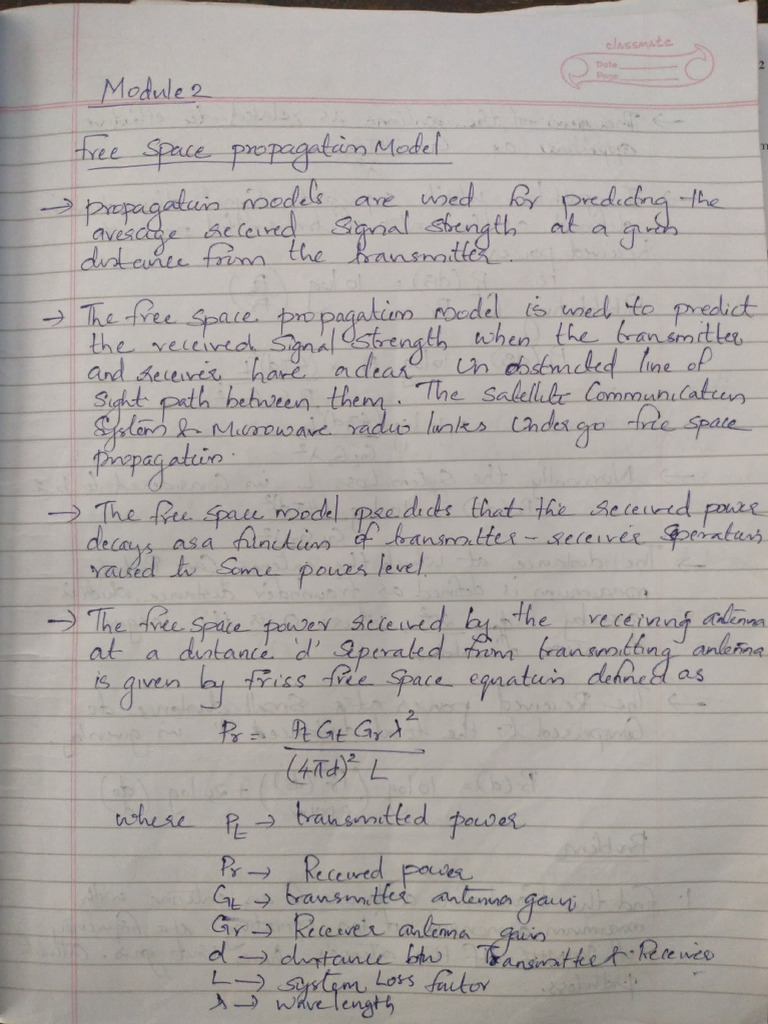 classmate
Date
Page
Module 2
free space propagation Model
→ propagation models are used for predicting the
average received signal strength at a given
distance from the transmitter.
→ The free space propagation model is used to predict
the received signal strength when the transmitter
and receiver have a clear un obstructed line of
sight path between them. The satellite Communication
System & Microwave radio links undergo free space
propagation.
→ The free space model predicts that the received power
decays as a function of transmitter - receiver seperation
raised to some power level.
→ The free space power received by the receiving antenna
at a distance 'd' seperated from transmitting antenna
is given by friss free space equation defined as
Pr = Pt Gt Gr λ²
(4πd)² L
where Pt → transmitted power
Pr → Received power
Gt → transmitter antenna gain
Gr → Receiver antenna gain
d → distance btw Transmitter & Receiver
L → system Loss factor
λ → wavelength
2